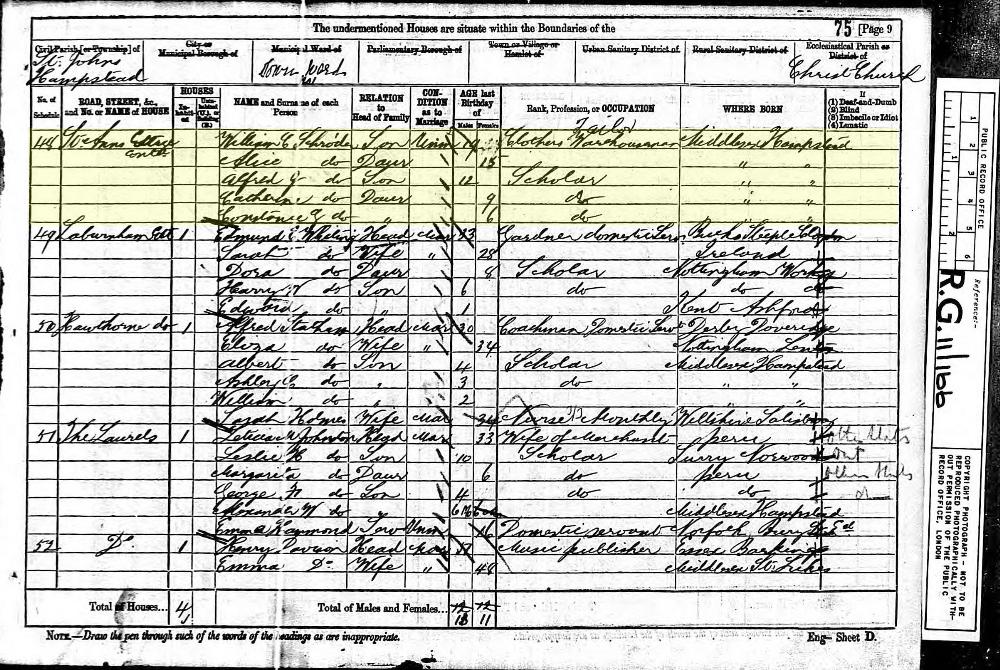 The undermentioned Houses are situate within the Boundaries of the
75 [Page 9
Civil Parish [or Township] of
City or Municipal Borough of
Municipal Ward of
Parliamentary Borough of
Town or Village or Hamlet of
Urban Sanitary District of
Rural Sanitary District of
Ecclesiastical Parish or District of
St. Johns Hampstead
Town Ward
Christ Church
No. of Schedule
ROAD, STREET, &c., and No. or NAME of HOUSE
HOUSES
Inhabited
Uninhabited (U.), or Building (B.)
NAME and Surname of each Person
RELATION to Head of Family
CONDITION as to Marriage
AGE last Birthday of
Males
Females
Rank, Profession, or OCCUPATION
WHERE BORN
If
(1) Deaf-and-Dumb
(2) Blind
(3) Imbecile or Idiot
(4) Lunatic
Tailor
48 St Anns Cottage William C. Son Unm 19 Clothers Warehouseman Middlesex Hampstead
Alice do Daur 15 " "
Alfred G do Son 12 Scholar " "
Catherine do Daur 9 do " "
Constance E do " 6 do
49 Laburnham Cott 1 Edmund E Whiting Head Mar 33 Gardner domestic Serv Bucks Steeple Claydon
Sarah do Wife " 28 Ireland
Dora do Daur 8 Scholar Nottingham
Harry do Son 6 do do do
Edward do " 1 Kent Ashford
50 Hawthorne do 1 Alfred Head Mar 30 Coachman Domestic Servt Derby Doveridge
Eliza do Wife " 34 Nottingham Lenton
Albert do Son 4 Scholar Middlesex Hampstead
Ashley do " 3 do " "
William do " 2
Sarah Holmes Wife Mar Nurse Monthly Wiltshire Salisbury
51 The Laurels 1 Johnston Head Mar 33 Wife of Merchant Peru
Leslie H do Son 10 Scholar Surry Norwood
Margarita do Daur 6 do Peru
George do Son 4 do do
Alexander W do Middlesex Hampstead
Emma Hammond Serv Unm 16 Domestic servant Norfolk
52 Do 1 Henry Head Mar Music publisher Essex Barking
Emma Do Wife " 48 Middlesex
Total of Houses... 4
Total of Males and Females... 12 12
13 11
NOTE.—Draw the pen through such of the words of the headings as are inappropriate.
Eng— Sheet D.
PUBLIC RECORD OFFICE
1 2 3 4 5 6
Reference:-
R.G. 11/166
COPYRIGHT PHOTOGRAPH - NOT TO BE REPRODUCED PHOTOGRAPHICALLY WITHOUT PERMISSION OF THE PUBLIC RECORD OFFICE, LONDON